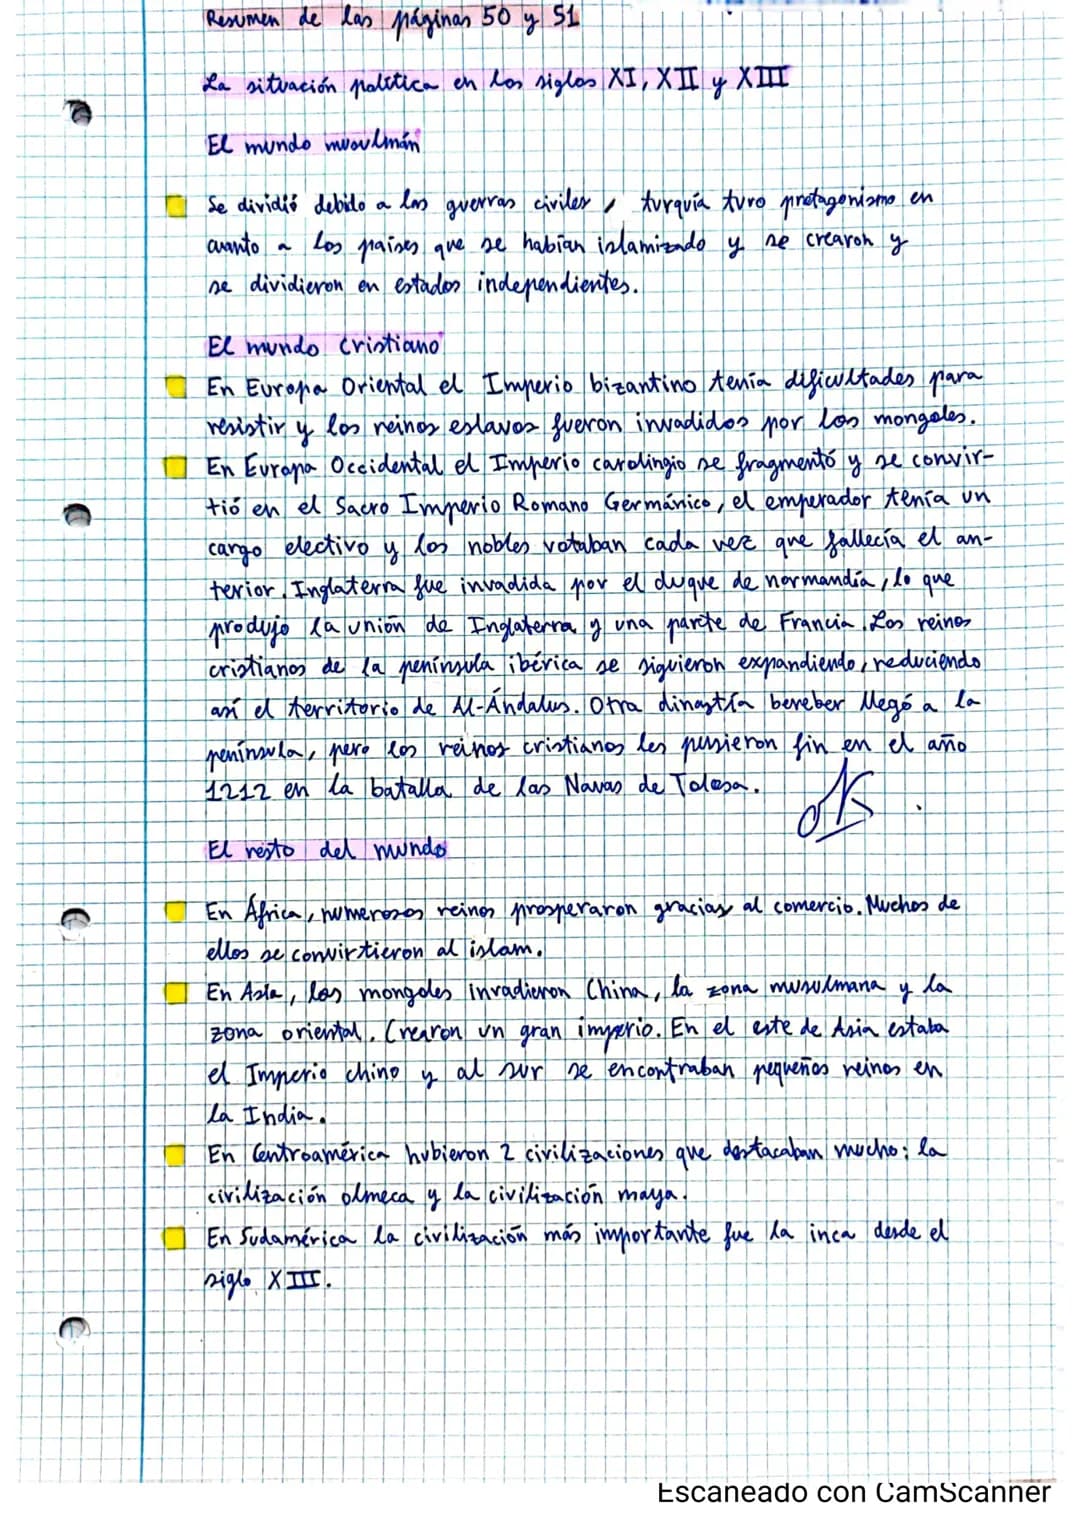 Resumen de las páginas 50 y 51
La situación política en los siglos XI, XII y XIII
El mundo musulmán
Se dividió debido a las guerras civiles, turquía tuvo protagonismo en
cuanto a los países que se habían islamizado y se crearon y
se dividieron en estados independientes.
El mundo cristiano
En Europa Oriental el Imperio bizantino tenía dificultades para
resistir y los reinos eslavos fueron invadidos por los mongoles.
En Europa Occidental el Imperio carolingio se fragmentó y se convir-
tió en el Sacro Imperio Romano Germánico, el emperador tenía un
cargo electivo y los nobles votaban cada vez que fallecía el an-
terior. Inglaterra fue invadida por el duque de normandía, lo que
produjo la unión de Inglaterra y una parte de Francia. Los reinos
cristianos de la península ibérica se siguieron expandiendo, reduciendo
así el territorio de Al-Ándalus. Otra dinastía bereber llegó a la
península, pero los reinos cristianos les pusieron fin en el año
1212 en la batalla de las Navas de Tolosa.
OK
El resto del mundo
En África, numerosos reinos prosperaron gracias al comercio. Muchos de
ellos se convirtieron al islam.
En Asia, los mongoles invadieron China, la zona musulmana y la
zona oriental. Crearon un gran imperio. En el este de Asia estaba
el Imperio chino y al sur se encontraban pequeños reinos en
la India.
En Centroamérica hubieron 2 civilizaciones que destacaban mucho: la
civilización olmeca y la civilización maya.
En Sudamérica la civilización más importante fue la inca desde el
siglo XIII.
Escaneado con CamScanner